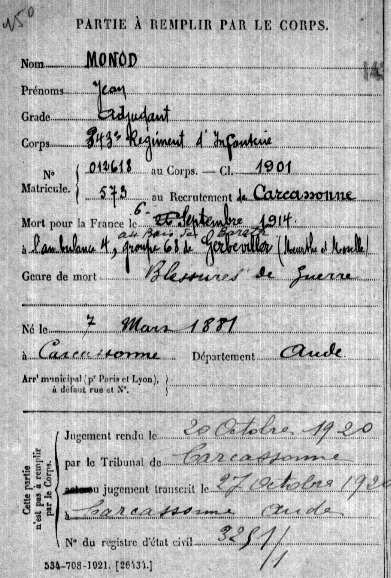 150
PARTIE À REMPLIR PAR LE CORPS.
Nom MONOD
Prénoms Jean
Grade Adjudant
Corps 343e Régiment d'Infanterie
N° Matricule. 012618 au Corps. — Cl. 1901
573 au Recrutement de Carcassonne
6
Mort pour la France le Septembre 1914
au Bois de
à l'ambulance 4, groupe 68 de Gerbeviller (Meurthe et Moselle)
Genre de mort Blessures de Guerre
Né le 7 Mars 1881
à Carcassonne Département Aude
Arrt municipal (pr Paris et Lyon), à défaut rue et N°.
Cette partie n'est pas à remplir par le Corps.
Jugement rendu le 20 Octobre 1920
par le Tribunal de Carcassonne
jugement transcrit le 27 Octobre 1920
à Carcassonne Aude
N° du registre d'état civil
534-708-1921. [26434.]